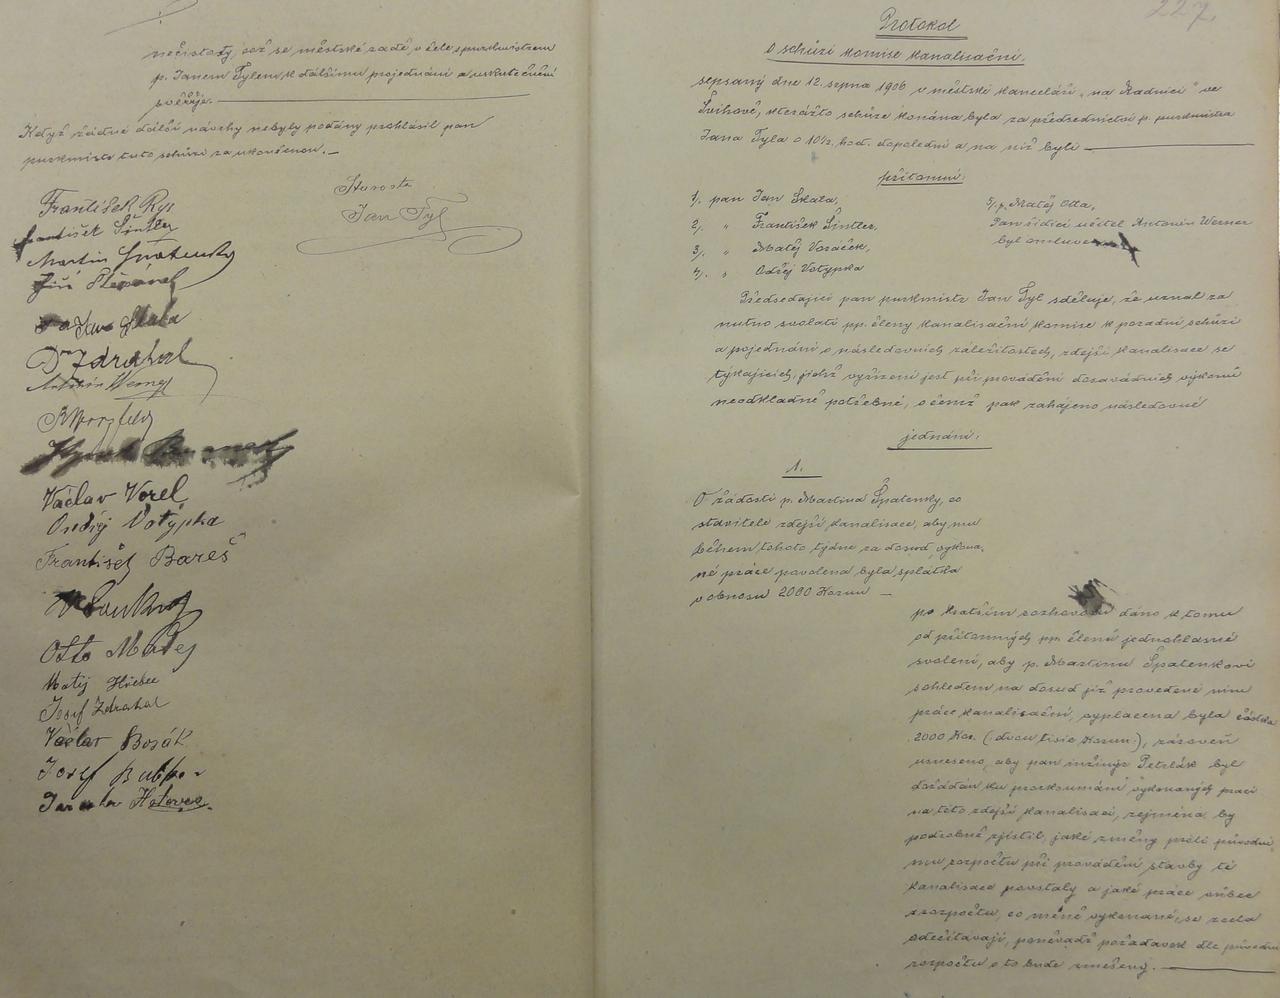 nečistoty, což se městské radě, v čele s purkmistrem
p. Janem Tylem k dalšímu projednání a uskutečnění
svěřuje.
Když žádné další návrhy nebyly podány prohlásil pan
purkmistr tuto schůzi za ukončenou.
Starosta
Jan Tyl
František Rys
František Šintler
Martin Špatenka
Jiří Štěpánek
Jan Skala
Dr Zdrahal
Antonín Werner
Václav Vorel
Ondřej Votýpka
František Bareš
Otto Matěj
Matěj
Josef Zdrahal
Václav Bosák
Josef
227.
Protokol
o schůzi komise kanalisační.
sepsaný dne 12. srpna 1906 v městské kanceláři „na Radnici" ve
Švihově, kterážto schůze konána byla za předsednictví p. purkmistra
Jana Tyla o 10½ hod. dopolední a na níž byli
přítomni:
1/. pan Jan Skala,
2/. „ František Šintler,
3/. „ Matěj Voráček,
4/. „ Ondřej Votypka
5/. p. Matěj Otta,
Pan řídící učitel Antonín Werner
byl omluven
Předsedající pan purkmistr Jan Tyl sděluje, že uznal za
nutno svolati pp. členy kanalisační komise k poradní schůzi
a pojednání o následovních záležitostech, zdejší kanalisace se
týkajících, jichž vyřízení jest při provádění dosavádních výkonů
neodkladně potřebné, o čemž pak zahájeno následovné
jednání:
1.
O žádosti p. Martina Špatenky, co
stavitele zdejší kanalisace, aby mu
během tohoto týdne za dosud vykona-
né práce povolena byla splátka
v obnosu 2000 Korun —
po kratším rozhovoru dáno k tomu
od přítomných pp. členů jednohlasné
svolení, aby p. Martinu Špatenkovi
sohledem na dosud již provedené ním
práce kanalisační, vyplacena byla částka
2000 Kor. (: dvou tisíc Korun:), zároveň
usneseno, aby pan inžinýr Petrlák byl
dožádán ku prozkoumání vykonaných prací
na této zdejší kanalisaci, zejména by
podrobně zjistil, jaké změny proti původní-
mu rozpočtu při provádění stavby té
kanalisace povstaly a jaké práce vůbec
z rozpočtu, co méně vykonané, se zcela
odečítávají, poněvadž požadavek dle původního
rozpočtu o to bude zmenšený.